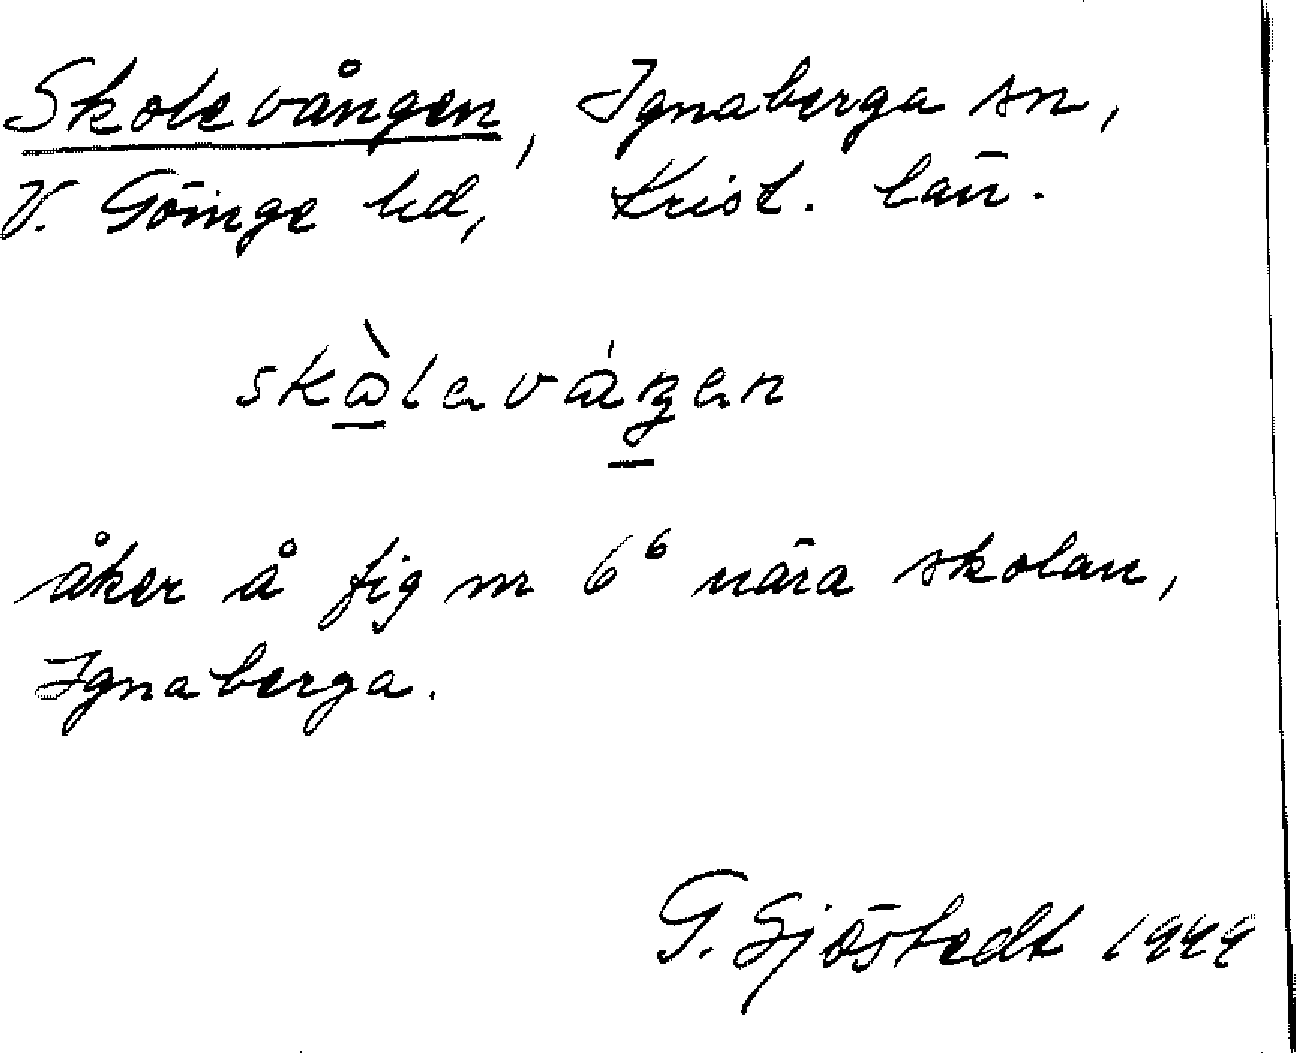 Skolevången, Ignaberga sn,
V. Göinge hd, Krist. län.
åker å fig nr 6⁶ nära skolan,
Ignaberga.
G. Sjöstedt